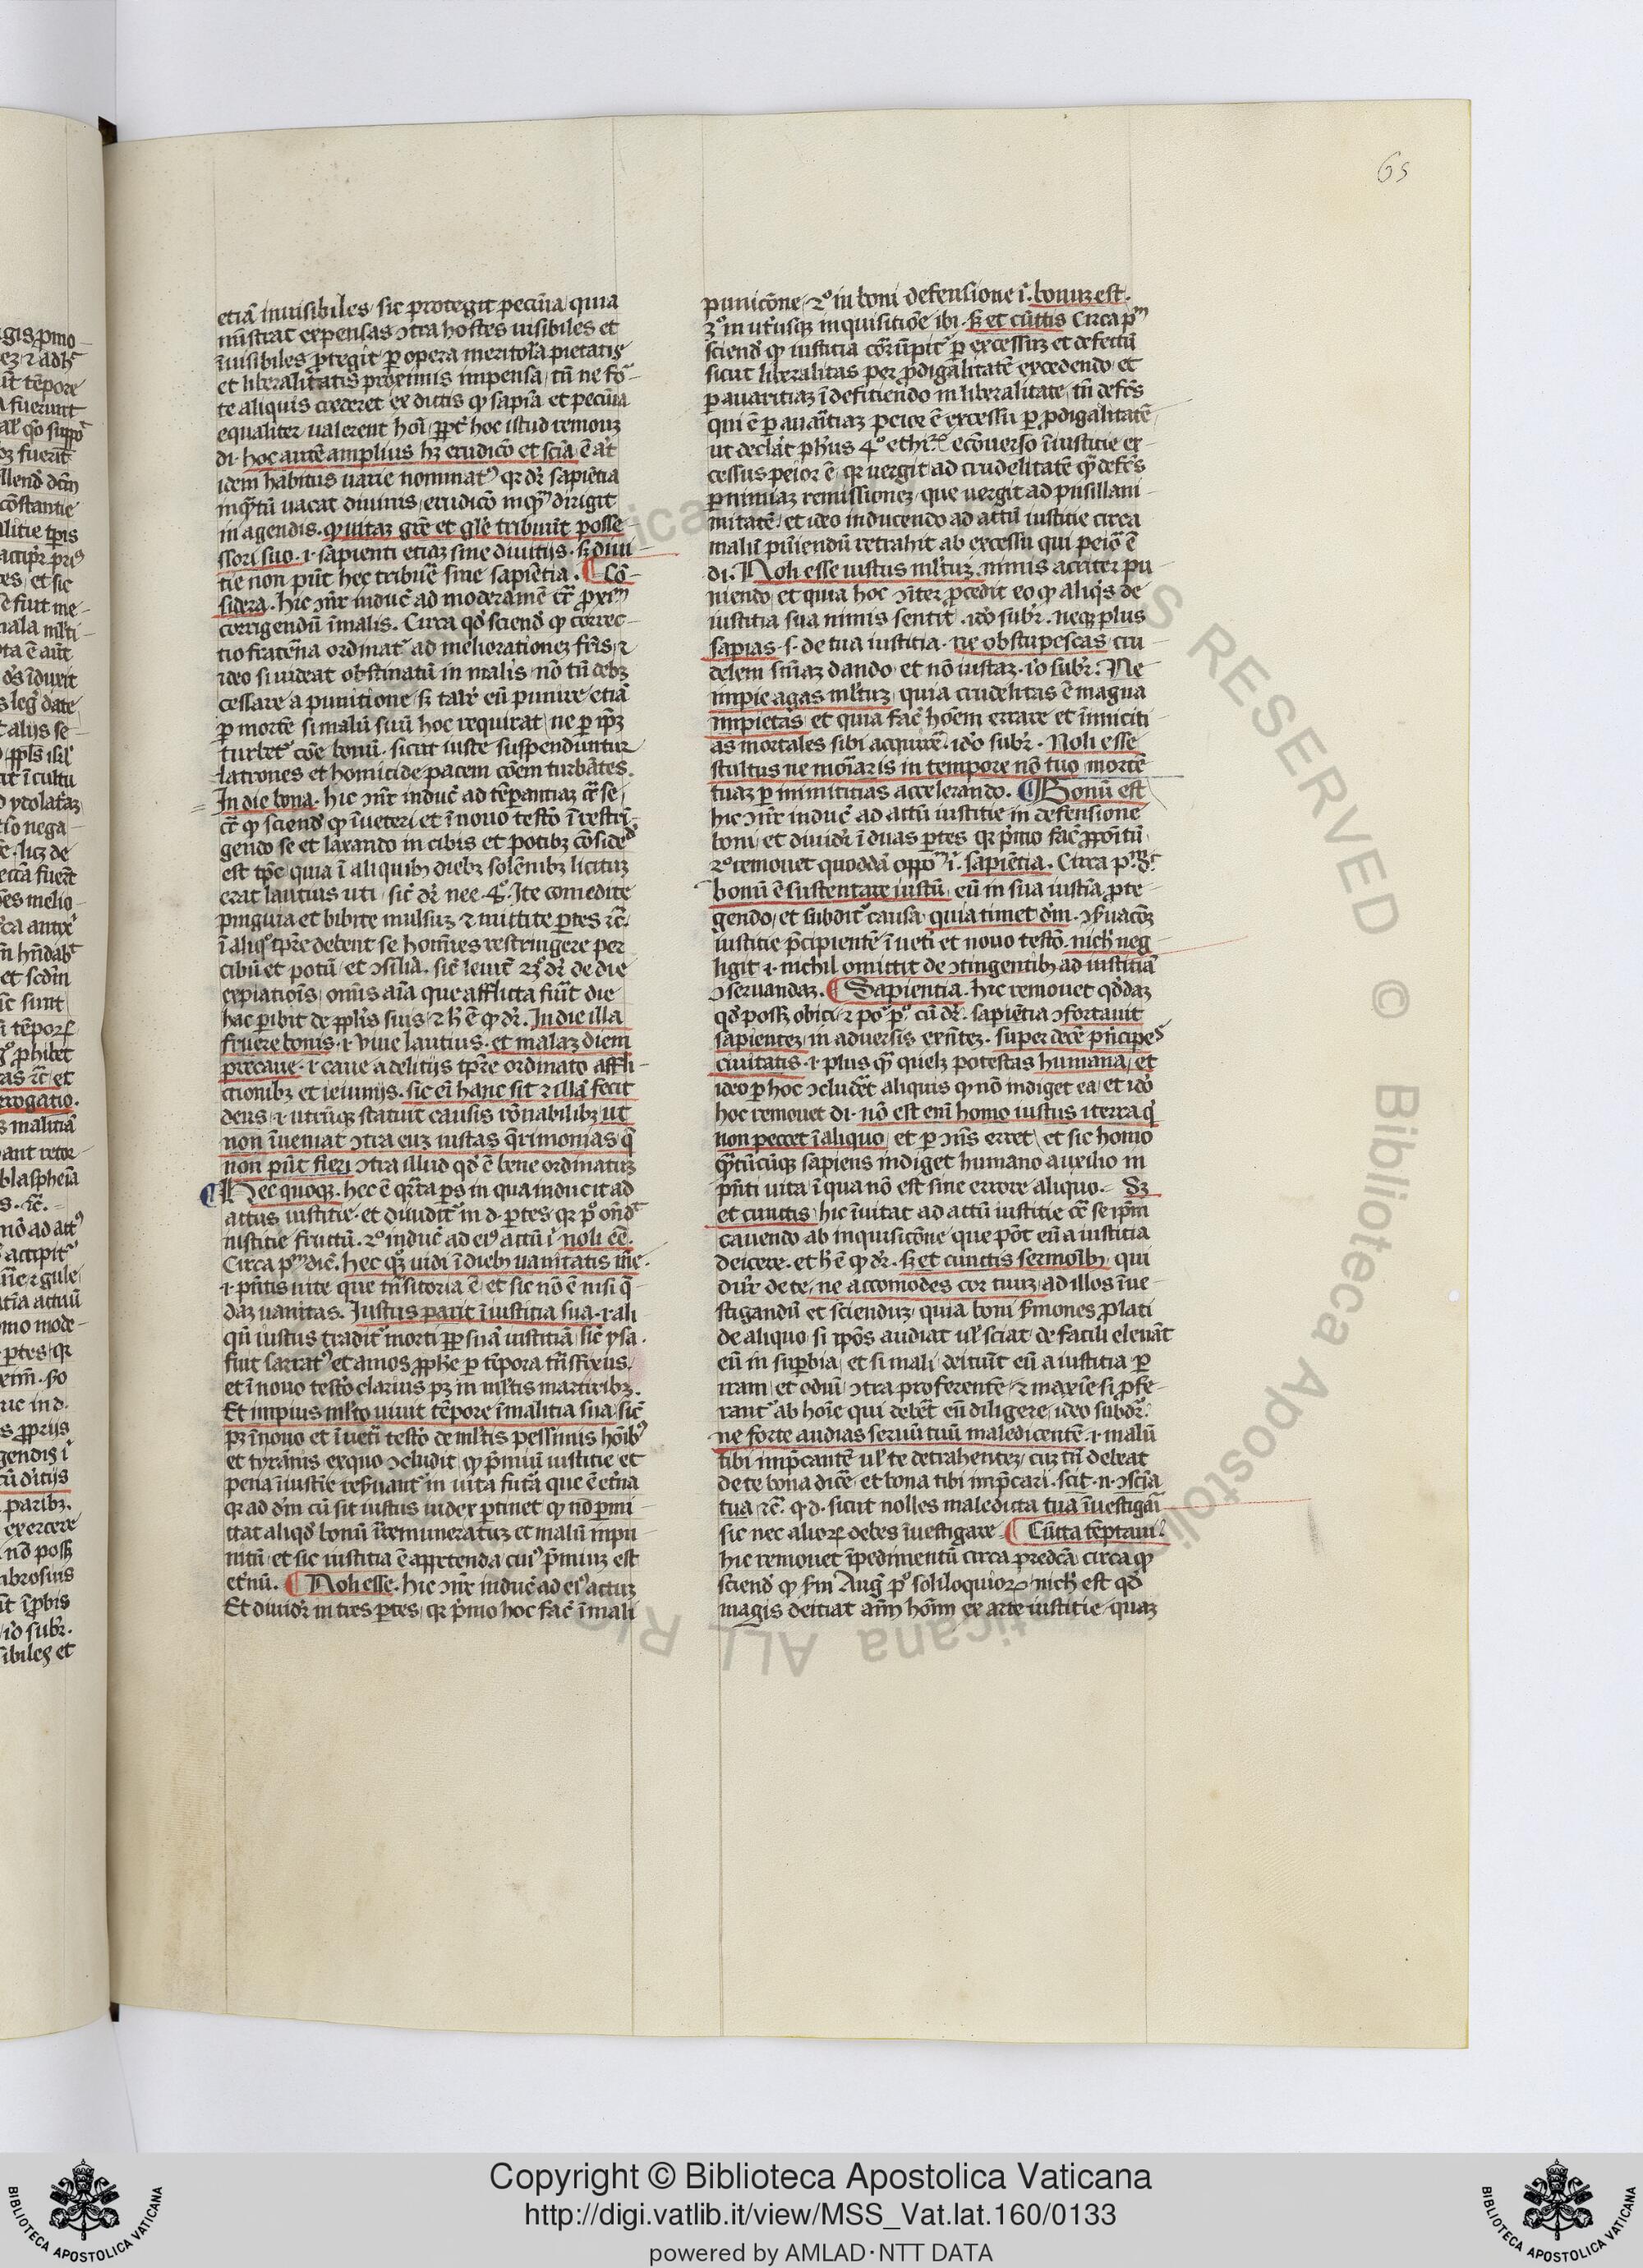 65
etiā inuisibiles sic protegit pecūia quia
mīstrat expensas ɔtra hostes uisibiles et
īuisibiles ꝓtegit ꝑ opera meritoīa pietatis
et liberalitatis proximis impensa tn̄ ne for
te aliquis crederet ex dictis ꝙ sapīa et pecūia
equaliter ualerent hoī ꝓpt̄ hoc istud remouꝫ
di. hoc autē amplius hꝫ erudicō et scīa ē aūt
idem habitus uarie nominatꝰ qr dr̄ sapiētia
inqͣtū uacat diuinis erudicō inqͣ dirigit
in agendis. ꝙ uitaꝫ gr̄e et gl̄e tribuūt posse
ssori suo .i. sapienti etiaꝫ sine diuitijs. sꝫ diui
tie non pn̄t hec tribue sine sapiētia. ¶ Cō
sidera. hic ɔn̄r induc̄ ad moderamē cͣ ꝓximū
corrigendū ī malis. Circa qd̄ sciend̄ ꝙ correc
tio fratēna ordinatr ad meliorationeꝫ fris ⁊
ideo si uideat obstinatū in malis nō tn̄ debꝫ
cessare a punitione sꝫ talē eū punire etiā
ꝑ mortē si malū suū hoc requirat ne ꝑ ip̄ꝫ
turbetr cōe bonū. sicut iuste suspenduntur
latrones et homicide pacem cōem turbātes.
In die bona. hic ɔn̄r induc̄ ad tēperantiaꝫ cͣ se
cͣ ꝙ sciend̄ ꝙ ī ueteri et ī nouo testō ī restrī
gendo se et laxando in cibis et potibꝫ cōsid̄
est tpc̄ quia ī aliquibꝫ diebꝫ solēnibꝫ licituꝫ
erat lautius uti sic̄ dr̄ nee. 4o. Ite comedite
pinguia et bibite mulsuꝫ ⁊ mittite ꝑtes ⁊c̄
ī alio tpr̄e debent se homīes restringere per
cibū et potū et ɔsilia. sic̄ leuit̄ 23 dr̄ de die
expiatiōis omīs aīa que afflicta fūit die
hac ꝑibit de ꝓplis suis ⁊ h ē ꝙ dr̄. In die illa
fruere bonis .i. viue lautius. et malaꝫ diem
precaue .i. caue a delitijs tpr̄e ordinato affli
ctionibꝫ et ieiunijs. sic eī hanc sit ⁊ illā fecit
deus .i. utrūqꝫ statuit causis rōnabilibꝫ ut
non īueniat ɔtra euꝫ iustas qͣrimonias q̄
non pn̄t fieri ɔtra illud qd̄ ē bene ordinatuꝫ
¶ Hec quoqꝫ. hec ē qr̄ta ps in qua inducit ad
actus iustitie et diuiditr in d. ꝑtes qr pͦ ond̄
iustitie fructū. 2o induc̄ ad eiꝰ actū ī noli eē.
Circa pm dic̄. hec qꝫ uidi ī diebꝫ uanitatis mē
.i. pn̄tis uite que trāsitoria ē et sic nō ē nisi q̄
daꝫ uanitas. Iustus parit ī iustitia sua .i. ali
qn̄ iustus traditr morti ꝓp suā iustitiā sic̄ ysa.
fuit sarratꝰ et amos ꝓph̄e ꝑ tēpora trāsfixus
et ī nouo testō clarius pꝫ in ml̄tis martiribꝫ.
Et impius ml̄to uiuit tēpore ī malitia sua sic̄
pꝫ ī nouo et ī ueti testō de ml̄tis pessimis hoībꝰ
et tyrānis exquo ɔcludit ꝙ p̄miū iustitie et
pena īiustie reseruantr in uita futā que ē etn̄a
qr ad dm̄ cū sit iustus iudex ꝑtinet ꝙ nō ꝑmi
ttat aliqd̄ bonū irremuneratuꝫ et malū impu
nitū et sic iustitia ē appetenda cuiꝰ p̄miuꝫ est
etn̄ū. ¶ Noli esse. hic ɔn̄r induc̄ ad eiꝰ actuꝫ
Et diuidr̄ in tres ꝑtes qr p̄mo hoc fac̄ ī mali
punicōne 2o in boni defensione ī. bonuꝫ est.
3o in utriusqꝫ inquisitiōe ibi. sꝫ et cūctis Circa pm
sciend̄ ꝙ iustitia corrūpitr ꝑ excessuꝫ et defectū
sicut liberalitas per ꝓdigalitatē excedendo et
ꝑ auaritiaꝫ ī defitiendo in liberalitate tn̄ defc̄s
qui ē ꝑ auaritiaꝫ peior ē excessu ꝑ ꝓdigalitatē
ut declāt phūs 4o ethi. ecōuerso ī iustitie ex
cessus peior ē qr uergit ad crudelitatē qͣ defc̄s
ꝑ nimiaꝫ remissioneꝫ que uergit ad pusillani
mitatē et ideo inducendo ad actū iustitie circa
malū pūiendū retrahit ab excessu qui peior ē
di. Noli esse iustus ml̄tuꝫ nimis acriter pu
niendo et quia hoc ɔiter ꝓcedit eo ꝙ aliqͥs de
iustitia sua nimis sentit .ido subr̄. neqꝫ plus
sapias .s. de tua iustitia. ne obstupescas cru
delem sn̄iaꝫ dando et nō iustaꝫ .io subr̄. Ne
impie agas ml̄tuꝫ quia crudelitas ē magna
impietas et quia fac̄ hoīem errare et īimiciti
as mortales sibi acquirē .ido subr̄. Noli esse
stultus ne moriaris in tempore nō tuo mortē
tuaꝫ ꝑ inimicitias accelerando. ¶ Bonū est
hic ɔn̄r induc̄ ad actū iustitie in defensione
boni et diuidr̄ ī duas ꝑtes qr p̄mo fac̄ ꝓpoītū
2o remouet quoddā oppoitū ī. sapiētia. Circa pm dc̄
bonū ē sustentare iustū eū in sua iustīa ꝓte
gendo et subditr causa quia timet dm̄. ɔseruacōꝫ
iustitie p̄cipientē ī ueti et nouo testō. nich̄ neg
ligit .i. nichil omittit de ɔtingentibꝫ ad iustitiā
ɔseruandaꝫ. ¶ Sapientia. hic remouet qd̄daꝫ
qd̄ posꝫ obici ⁊ po pͦ. cū dr̄. sapiētia ɔfortauit
sapienteꝫ in aduersis exn̄teꝫ. super decē pn̄cipes
ciuitatis .i. plus qͣ quelꝫ potestas humana et
ideo ꝑ hoc ɔcludet̄ aliquis ꝙ nō indiget ea et ido
hoc remouet di. nō est enī homo iustus ī terra qͥ
non peccet ī aliquo et ꝑ ɔn̄s erret et sic homo
qͣtūcūqꝫ sapiens indiget humano auxilio in
pn̄ti uita ī qua nō est sine errore aliquo. Sꝫ
et cunctis hic īuitat ad actū iustitie cͣ se ip̄m
cauendo ab inquisicōne que pōt eū a iustitia
deicere. et h ē ꝙ dr̄. sꝫ et cunctis sermoībꝫ qui
dūr de te ne accomodes cor tuuꝫ ad illos īue
stigandū et sciendūꝫ quia boni sermones ꝓlati
de aliquo si ip̄os audiat ul̄ sciat de facili eleuāt
eū in suꝑbia et si mali deiciūt eū a iustitia ꝑ
iram et odiū ɔtra proferentē ⁊ maxīe si ꝓfe
rantr ab hoīe qui debet̄ eū diligere ideo subdr̄.
ne forte audias seruū tuū maledicentē .i. malū
tibi imp̄cantē ul̄ te detrahenteꝫ cuꝫ tn̄ debeat
de te bona dicē et bona tibi imp̄cari. scit .n. ɔscīa
tua ⁊c̄. q.d. sicut nolles maledicta tua īuestigari
sic nec alioꝝ debes īuestigare ¶ Cūcta tēptaui
hic remouet īpedimentū circa predc̄a circa ꝙ
sciend̄ ꝙ sm̄ Auḡ pͦ soliloquioꝝ nich̄ est qd̄
magis deiciat aīm hoīm ex arce iustitie quaꝫ
Copyright © Biblioteca Apostolica Vaticana
http://digi.vatlib.it/view/MSS_Vat.lat.160/0133
powered by AMLAD·NTT DATA
BIBLIOTECA APOSTOLICA VATICANA
BIBLIOTECA APOSTOLICA VATICANA